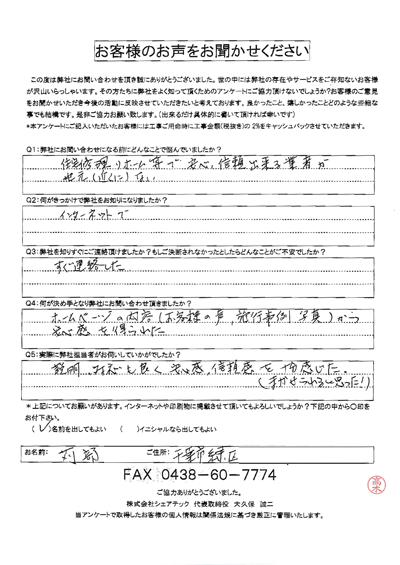 お客様のお声をお聞かせください
この度は弊社にお問い合わせを頂き誠にありがとうございました。世の中には弊社の存在やサービスをご存知ないお客様
が沢山いらっしゃいます。その方たちに弊社をよく知って頂くためのアンケートにご協力頂けないでしょうか?お客様のご意見
をお聞かせいただき今後の活動に反映させていただきたいと考えております。良かったこと、嬉しかったことどのような些細な
事でも結構です。是非ご協力お願い致します。(出来るだけ具体的に書いて頂ければ幸いです)
*本アンケートにご記入いただいたお客様には工事ご用命時に工事金額(税抜き)の2%をキャッシュバックさせていただきます。
Q1:弊社にお問い合わせになる前にどんなことで悩んでいましたか?
住宅修理、リホーム等で安心、信頼出来る業者が
地元(近く)にない
Q2:何がきっかけで弊社をお知りになりましたか?
インターネットで
Q3:弊社を知りすぐにご連絡頂けましたか?もしご決断されなかったとしたらどんなことがご不安でしたか?
すぐ連絡した
Q4:何が決め手となり弊社にお問い合わせ頂きましたか?
ホームページの内容(お客様の声、施行事例 写真)から
安心感を得られた
Q5:実際に弊社担当者がお伺いしていかがでしたか?
説明、対応も良く安心感、信頼感を感じた。
(まかせられると思った!)
*上記についてお願いがあります。インターネットや印刷物に掲載させて頂いてもよろしいでしょうか?下記の中から○印を
お付下さい。
(✓)名前を出してもよい ( )イニシャルなら出してもよい
お名前: 刈部 ご住所: 千葉市緑区
FAX 0438-60-7774
ご協力ありがとうございました。
株式会社シェアテック 代表取締役 大久保 誠二
当アンケートで取得したお客様の個人情報は関係法規に基づき厳正に管理いたします。